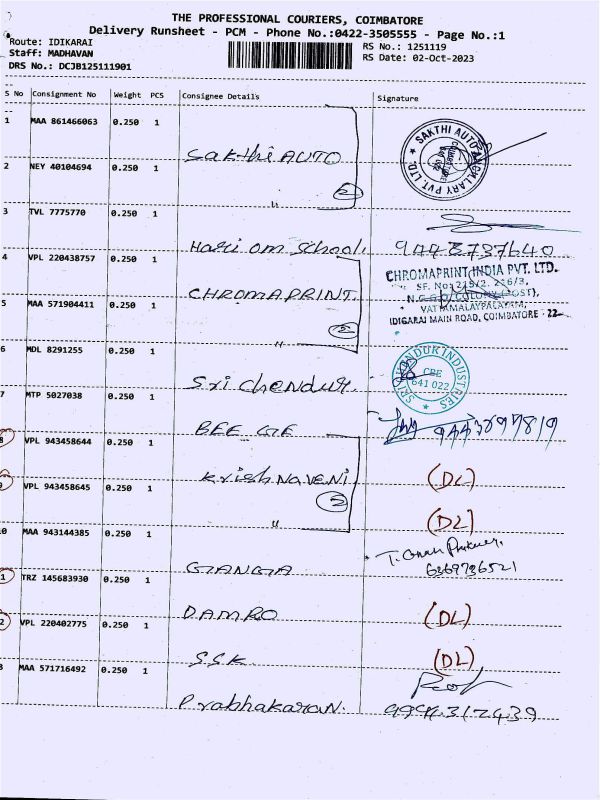 THE PROFESSIONAL COURIERS, COIMBATORE
Delivery Runsheet - PCM - Phone No.:0422-3505555 - Page No.:1
Route: IDIKARAI
RS No.: 1251119
Staff: MADHAVAN
RS Date: 02-Oct-2023
DRS No.: DCJB125111901
S No Consignment No Weight PCS Consignee Details Signature
1 MAA 861466063 0.250 1
Sakthi AUTO
SAKTHI AUTO ANCILLARY PVT. LTD.
2 NEY 40104694 0.250 1
2
"
3 TVL 7775770 0.250 1
Hari om School, 9448737640
4 VPL 220438757 0.250 1
CHROMAPRINT INDIA PVT. LTD.
SF. No: 215/2, 216/3,
CHROMAPRINT.
N.G.G.O. COLONY (POST),
VATTAMALAYPALAYAM,
5 MAA 571904411 0.250 1
IDIGARAI MAIN ROAD, COIMBATORE - 22
2
"
6 MDL 8291255 0.250 1
Sri Chendur.
INDUSTRIES
CBE
641 022
7 MTP 5027038 0.250 1
BEE GE
8 VPL 943458644 0.250 1
KrishNaveNi
(DL)
9 VPL 943458645 0.250 1
2
"
(DL)
0 MAA 943144385 0.250 1
GANGA
T.
6369736521
1 TRZ 145683930 0.250 1
DAMRO
(DL)
2 VPL 220402775 0.250 1
S.S.K.
(DL)
3 MAA 571716492 0.250 1
Prabhakaran. 9994312439